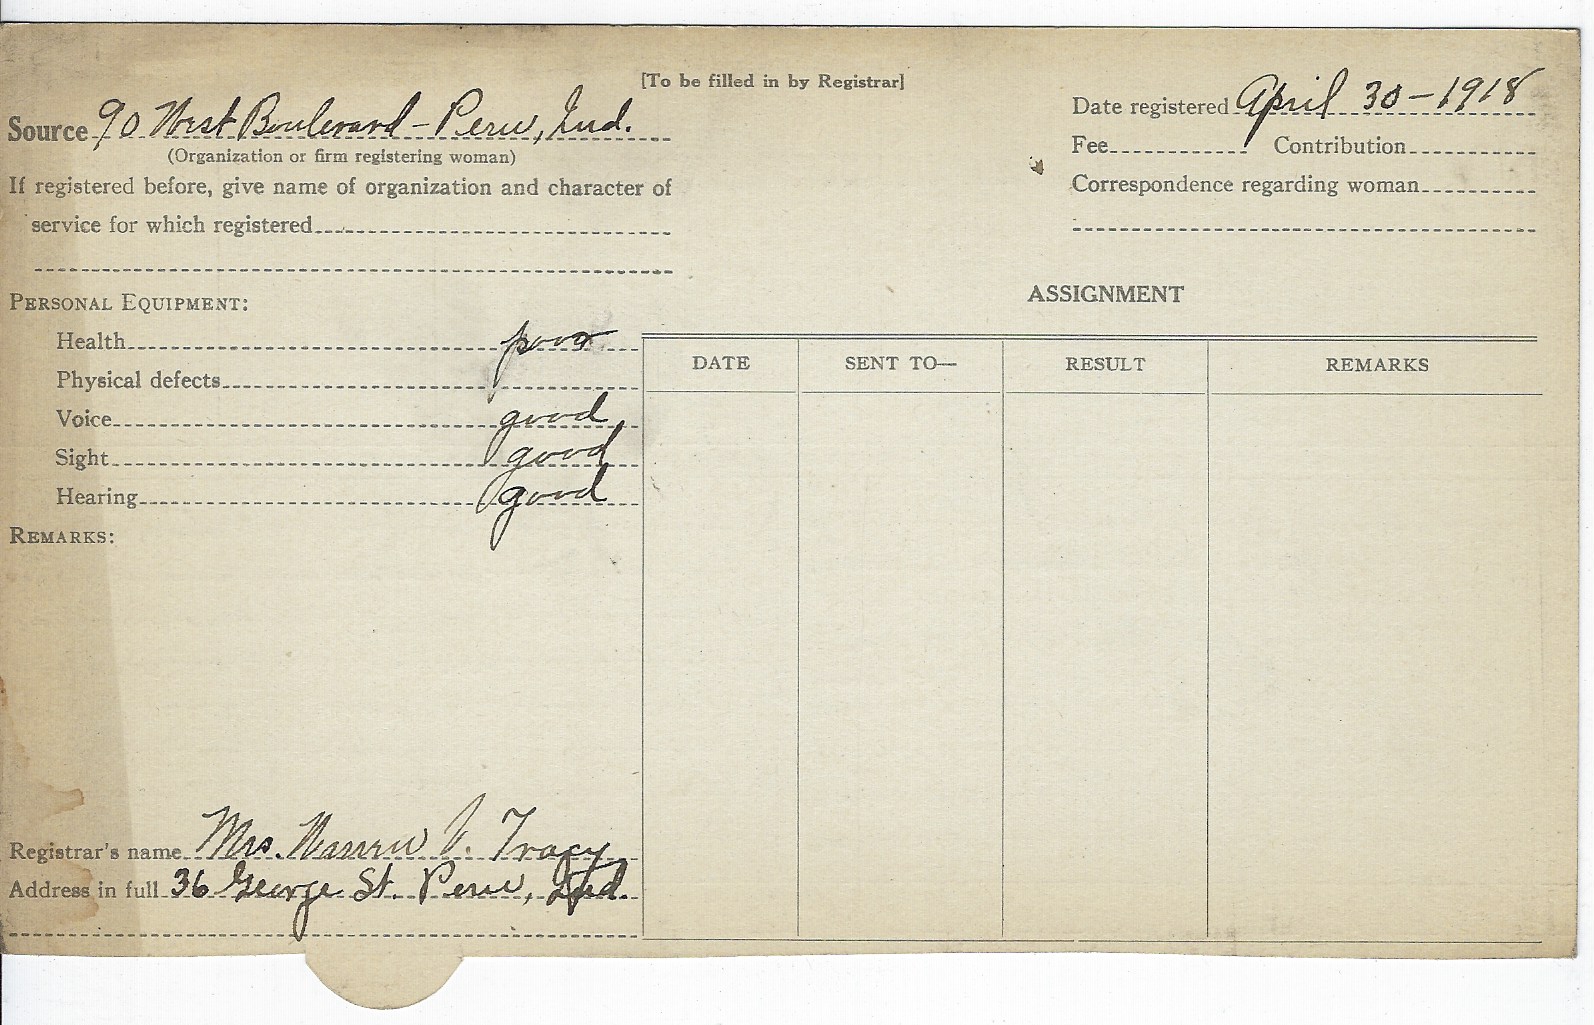 [To be filled in by Registrar]
Source 90 West Boulevard - Peru, Ind.
(Organization or firm registering woman)
If registered before, give name of organization and character of
service for which registered
Date registered April 30 - 1918
Fee Contribution
Correspondence regarding woman
PERSONAL EQUIPMENT:
Health poor
Physical defects
Voice good
Sight good
Hearing good
REMARKS:
ASSIGNMENT
DATE SENT TO— RESULT REMARKS
Registrar's name Mrs. Warren V. Tracy
Address in full 36 George St. Peru, Ind.